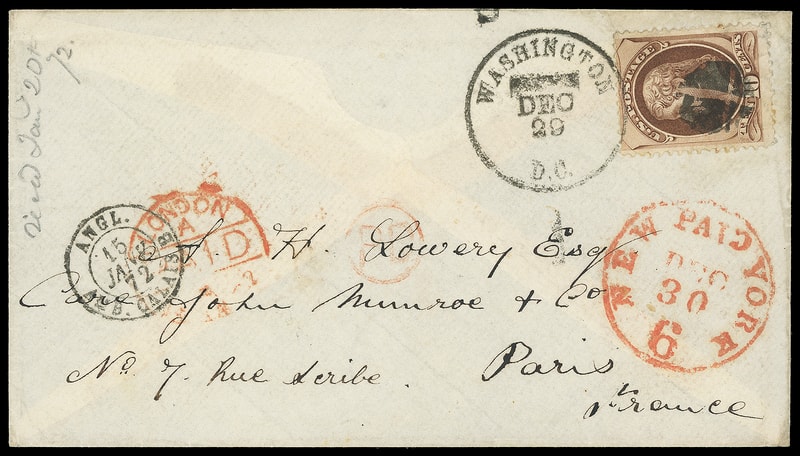 Jany 20th
/72.
WASHINGTON
DEC
29
D.C.
U.S. POSTAGE
ANGL.
15
JA
72
CALAIS
LONDON
A
PAID
PD
NEW YORK
PAID
DEC
30
6
H. Lowery Esq
Care John Munroe & Co
No. 7. Rue Scribe.
Paris
France